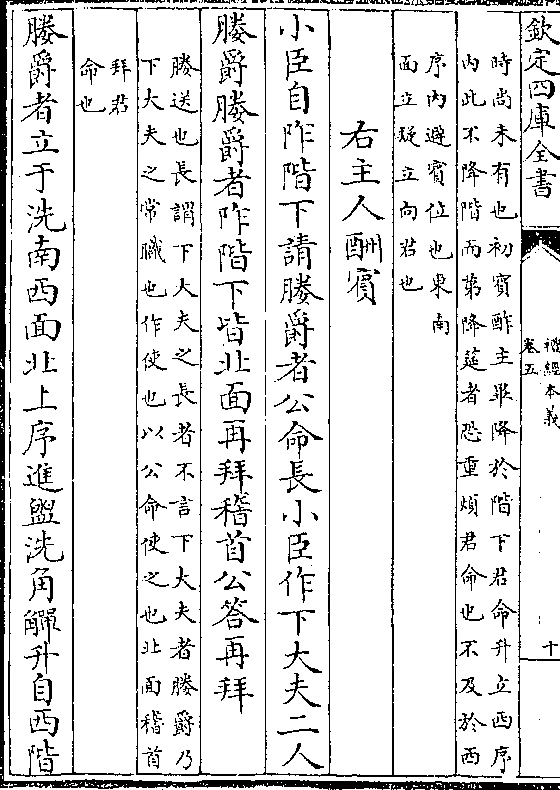 欽定四庫全書
禮經本義
卷五
十
時尚未有也初賓酢主畢降於階下君命升立西序
内此不降階而第降筵者恐重煩君命也不及於西
序内避賓位也東南
面立疑立向君也
右主人酬賓
小臣自阼階下請媵爵者公命長小臣作下大夫二人
媵爵媵爵者阼階下皆北面再拜稽首公答再拜
媵送也長謂下大夫之長者不言下大夫者媵爵乃
下大夫之常職也作使也以公命使之也北面稽首
拜君
命也
媵爵者立于洗南西面北上序進盥洗角觶升自西階